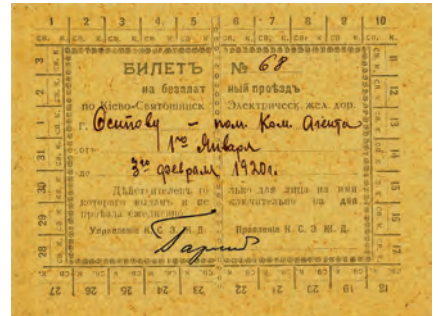 1 2 3 4 5 6 7 8 9 10
БИЛЕТЪ № 68
на безплатный проѣздъ
по Кіево-Святошинск. Электрическ. жел. дор.
Г. Осипову – пом. Ком. Агента
отъ 1го Января
до 3го февраля 1920г.
Дѣйствителенъ только для лица на имя
котораго выданъ и
проѣзда ежедневно
Управленіе К. С. Э. Ж. Д. Правленіе К. С. Э. Ж. Д.
27 26 25 24 23 22 21 20 19 18